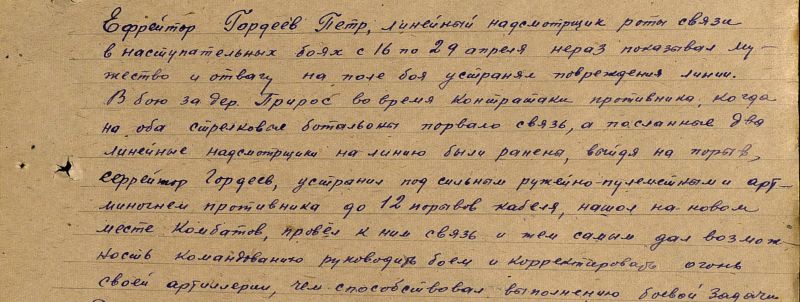 Ефрейтор Гордеев Петр, линейный надсмотрщик роты связи
в наступательных боях с 16 по 29 апреля нераз показывал му-
жество и отвагу на поле боя устранял повреждения линии.
В бою за дер. Пририос во время контратаки противника, когда
на оба стрелковые ботальоны порвало связь, а посланные два
линейные надсмотрщики на линию были ранены, выйдя на порыв,
ефрейтор Гордеев, устранил под сильным ружейно-пулеметным и арт-
миногнем противника до 12 порывов кабеля, нашол на новом
месте Комбатов, провёл к ним связь и тем самым дал возмож-
ность командованию руководить боем и корректировать огонь
своей артиллерии, чем способствовал выполнению боевой задачи